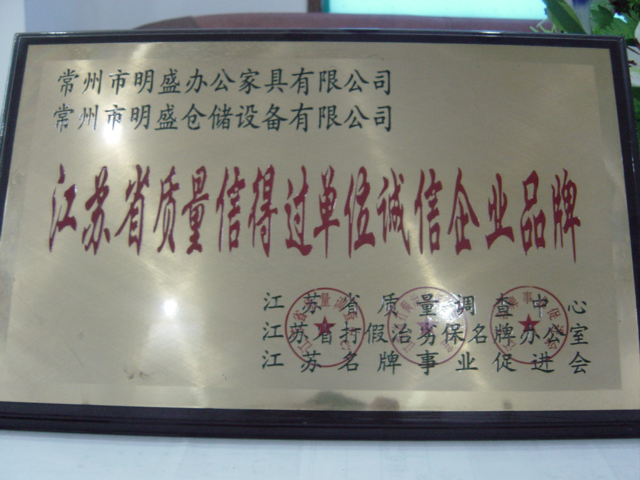 常州市明盛办公家具有限公司
常州市明盛仓储设备有限公司
江苏省质量信得过单位诚信企业品牌
江苏省质量调查中心
江苏省打假治劣保名牌办公室
江苏名牌事业促进会